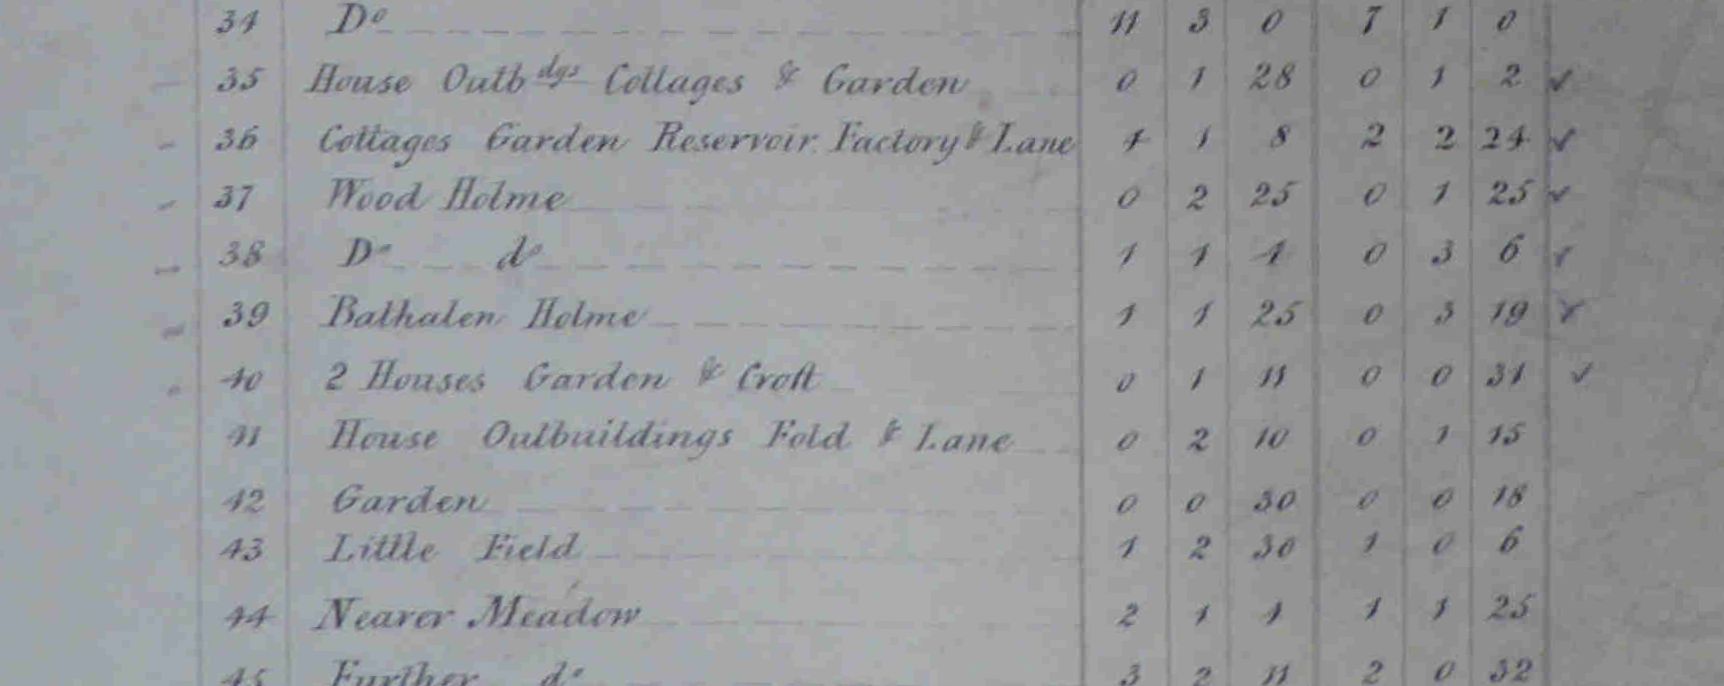 34 Do 11 3 0 7 1 0
35 House Outbdgs Cottages & Garden 0 1 28 0 1 2 ✓
36 Cottages Garden Reservoir Factory & Lane 4 1 8 2 2 24 ✓
37 Wood Holme 0 2 25 0 1 25 ✓
38 Do do 1 1 4 0 3 6 ✓
39 Bathalen Holme 1 1 25 0 3 19 ✓
40 2 Houses Garden & Croft 0 1 11 0 0 31 ✓
41 House Outbuildings Fold & Lane 0 2 10 0 1 15
42 Garden 0 0 30 0 0 18
43 Little Field 1 2 30 1 0 6
44 Nearer Meadow 2 1 4 1 1 25
45 Further do 3 2 11 2 0 32